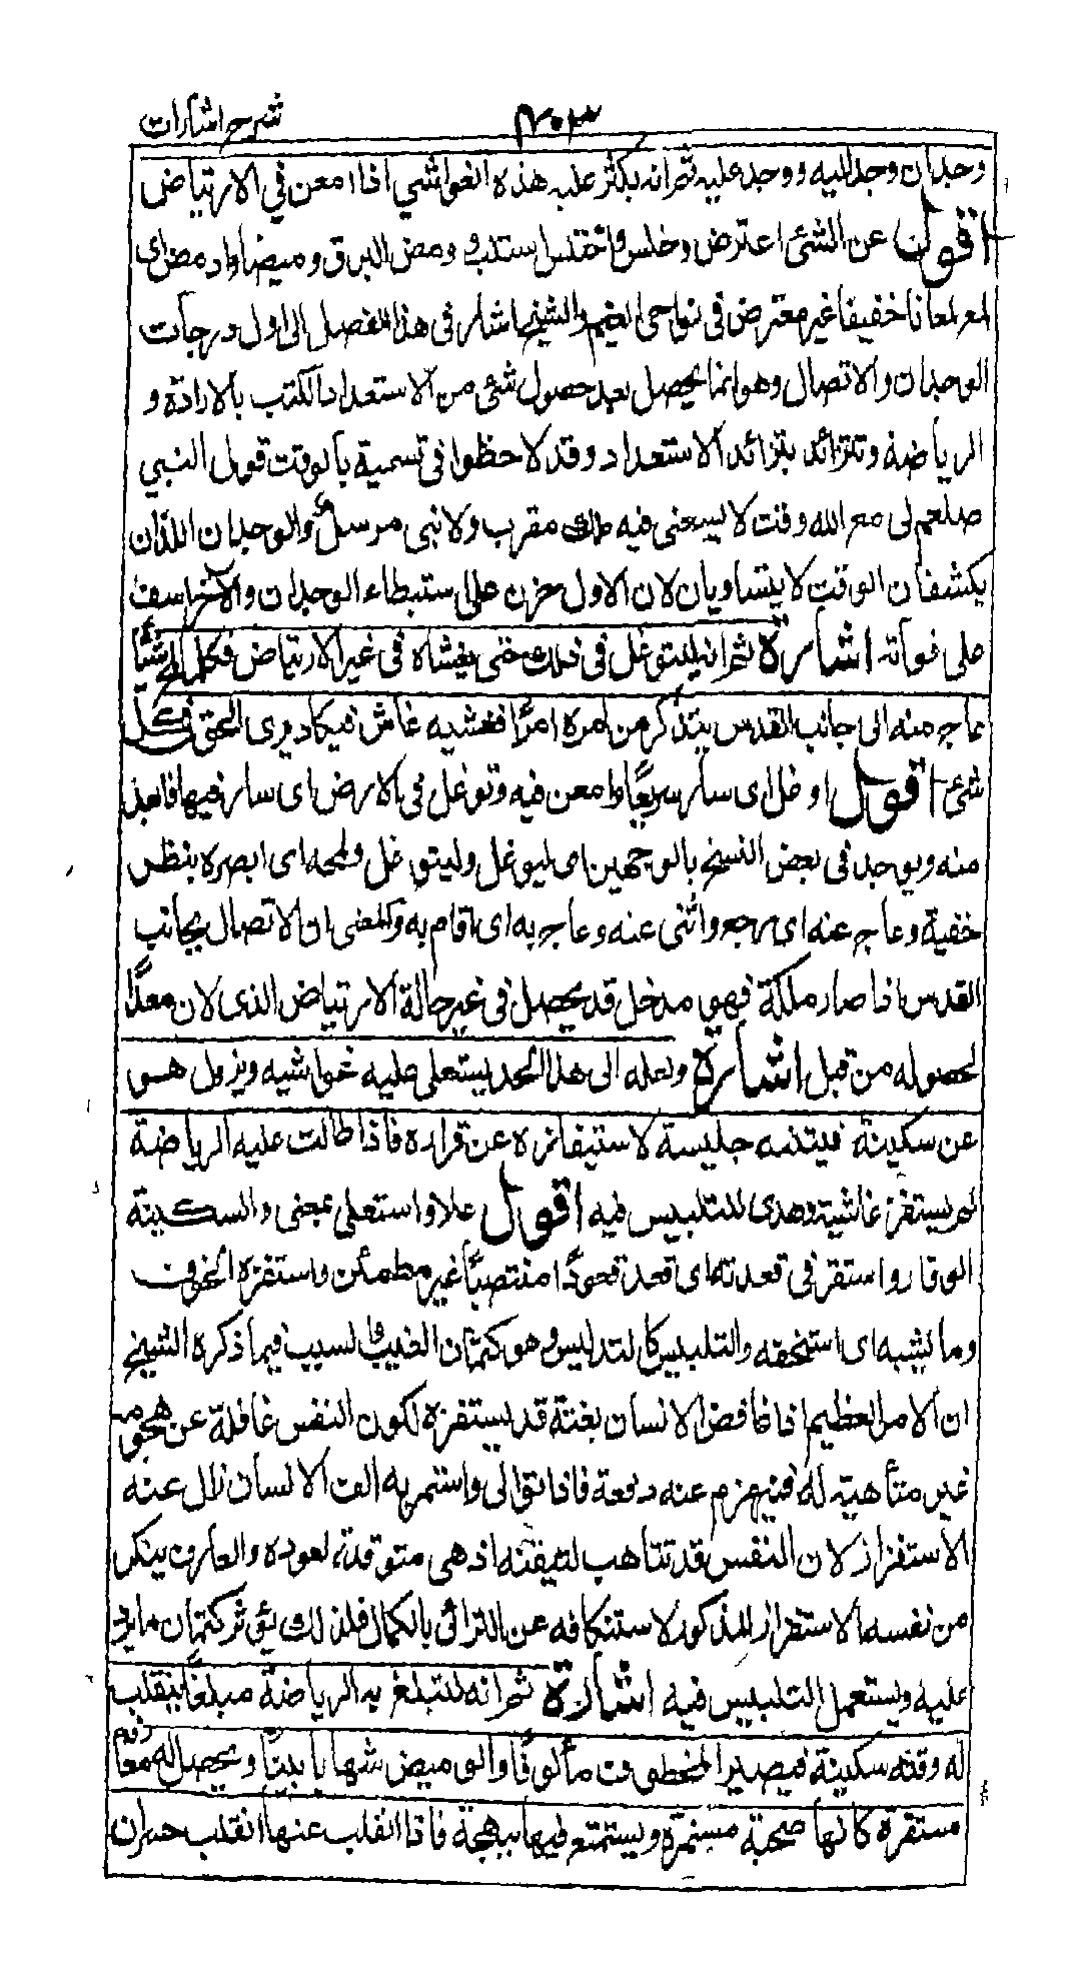 شرح اشارات
۴۰۳
وجدان وجد اليه ووجد عليه ثم انه بكثر عليه هذه الغواشي اذا امعن في الارتياض
اقول عن الشئ اعترض وخلس واختلس استلب و ومض البرق وميضا واومض اى
لمع لمعانا خفيفا غير معترض فى نواحى الغيم والشيخ اشار فى هذا الفصل الى اول درجات
الوجدان والاتصال وهو انما يحصل بعد حصول شئ من الاستعداد المكتسب بالارادة و
الرياضة وتتزائد بتزائد الاستعداد وقد لاحظوا فى تسمية بالوقت قول النبي
صلعم لى مع الله وقت لا يسعنى فيه ملك مقرب ولا نبى مرسل والوجدان اللذان
يكشفان الوقت لا يتساويان لان الاول حزن على استبطاء الوجدان والآخر اسف
على فواته اشارة ثم انه ليتوغل فى ذلك حتى يغشاه فى غير الارتياض فكلما لمح شيأ
عاج منه الى جانب القدس يتذكر من امره امرًا فغشيه غاش فيكاد يرى الحق فى كل
شئ اقول اوغل اى سار سريعًا وامعن فيه وتوغل فى الارض اى سار فيها فابعد
منه ويوجد فى بعض النسخ بالوجهين اى ليوغل وليتوغل ولمحه اى ابصره بنظر
خفية وعاج عنه اى رجع واثنى عنه وعاج به اى اقام به والمعنى ان الاتصال بجانب
القدس اذا صار ملكة فهى مدخل قد يحصل فى غير حالة الارتياض الذى لان معدًّا
لحصوله من قبل اشارة ولعله الى هذا الحد يستعلى عليه غواشيه ويزول هو
عن سكينة فيتنبه جليسة لاستيفازه عن قراره فاذا طالت عليه الرياضة
لم يستفزه غاشية وهدى للتلبيس فيه اقول علا واستعلى بمعنى والسكينة
الوقار واستقز فى قعدته اى قعد قعودًا منتصبًا غير مطمئن واستفزه الخوف
وما يشبه اى استخفه والتلبيس كالتدليس وهو كتمان العيب والسبب فيما ذكره الشيخ
ان الامر العظيم اذا غافض الانسان بغتة قد يستفزه لكون النفس غافلة عن هجومه
غير متأهبة له فينهزم عنه دفعة فاذا توالى واستمر به الف الانسان زال عنه
الاستفزاز لان النفس قد تتاهب لتلقيه اذ هى متوقعة لعوده والعارف ينكر
من نفسه الاستفزاز المذكور لاستنكافه عن الترائى بالكمال فلذلك يؤثر كتمان ما يرد
عليه ويستعمل التلبيس فيه اشارة ثم انه لتبلغ به الرياضة مبلغًا ينقلب
له وقته سكينة فيصير المخطوف مألوفًا والوميض شهابا بينًا ويحصل له معارفة
مستقرة كانها صحبة مستمرة ويستمتع فيها ببهجة فاذا انقلب عنها انقلب حيران